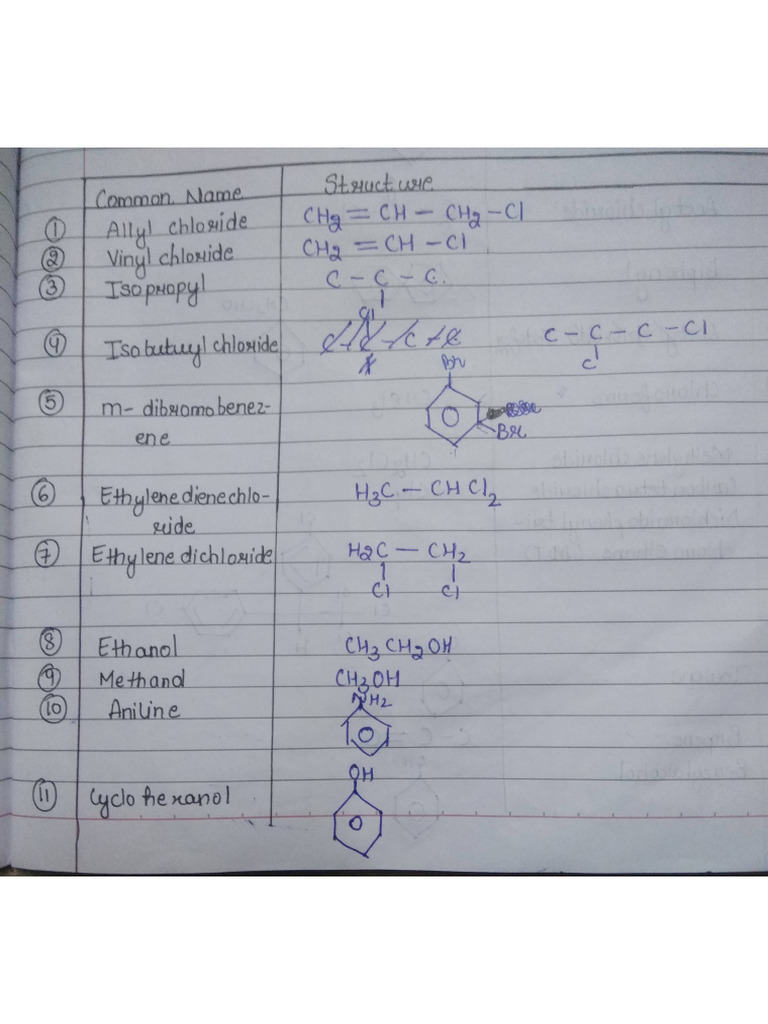 Common Name Structure
① Allyl chloride CH2 = CH - CH2 - Cl
② Vinyl chloride CH2 = CH - Cl
③ Isopropyl C - C - C.
Cl
④ Isobutuyl chloride C - C - C - Cl
C
⑤ m- dibromobenez- Br
ene Br
⑥ Ethylenedienechlo- H3C - CHCl2
ride
⑦ Ethylene dichloride H2C - CH2
Cl Cl
⑧ Ethanol CH3CH2OH
⑨ Methanol CH3OH
⑩ Aniline NH2
OH
⑪ Cyclohexanol